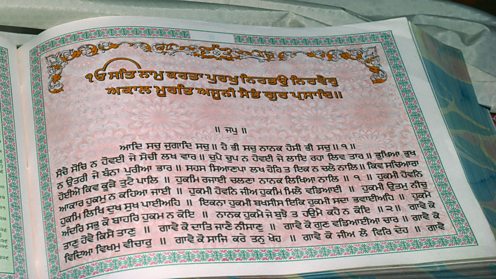 ੴ ਸਤਿ ਨਾਮੁ ਕਰਤਾ ਪੁਰਖੁ ਨਿਰਭਉ ਨਿਰਵੈਰੁ
ਅਕਾਲ ਮੂਰਤਿ ਅਜੂਨੀ ਸੈਭੰ ਗੁਰ ਪ੍ਰਸਾਦਿ॥
॥ ਜਪੁ ॥
ਆਦਿ ਸਚੁ ਜੁਗਾਦਿ ਸਚੁ॥ ਹੈ ਭੀ ਸਚੁ ਨਾਨਕ ਹੋਸੀ ਭੀ ਸਚੁ॥੧॥
ਸੋਚੈ ਸੋਚਿ ਨ ਹੋਵਈ ਜੇ ਸੋਚੀ ਲਖ ਵਾਰ॥ ਚੁਪੈ ਚੁਪ ਨ ਹੋਵਈ ਜੇ ਲਾਇ ਰਹਾ ਲਿਵ ਤਾਰ॥ ਭੁਖਿਆ ਭੁਖ
ਨ ਉਤਰੀ ਜੇ ਬੰਨਾ ਪੁਰੀਆ ਭਾਰ॥ ਸਹਸ ਸਿਆਣਪਾ ਲਖ ਹੋਹਿ ਤ ਇਕ ਨ ਚਲੈ ਨਾਲਿ॥ ਕਿਵ ਸਚਿਆਰਾ
ਹੋਈਐ ਕਿਵ ਕੂੜੈ ਤੁਟੈ ਪਾਲਿ॥ ਹੁਕਮਿ ਰਜਾਈ ਚਲਣਾ ਨਾਨਕ ਲਿਖਿਆ ਨਾਲਿ॥੧॥ ਹੁਕਮੀ ਹੋਵਨਿ
ਆਕਾਰ ਹੁਕਮੁ ਨ ਕਹਿਆ ਜਾਈ॥ ਹੁਕਮੀ ਹੋਵਨਿ ਜੀਅ ਹੁਕਮਿ ਮਿਲੈ ਵਡਿਆਈ॥ ਹੁਕਮੀ ਉਤਮੁ ਨੀਚੁ
ਹੁਕਮਿ ਲਿਖਿ ਦੁਖ ਸੁਖ ਪਾਈਅਹਿ॥ ਇਕਨਾ ਹੁਕਮੀ ਬਖਸੀਸ ਇਕਿ ਹੁਕਮੀ ਸਦਾ ਭਵਾਈਅਹਿ॥ ਹੁਕਮੈ
ਅੰਦਰਿ ਸਭੁ ਕੋ ਬਾਹਰਿ ਹੁਕਮ ਨ ਕੋਇ॥ ਨਾਨਕ ਹੁਕਮੈ ਜੇ ਬੁਝੈ ਤ ਹਉਮੈ ਕਹੈ ਨ ਕੋਇ॥੨॥ ਗਾਵੈ ਕੋ
ਤਾਣੁ ਹੋਵੈ ਕਿਸੈ ਤਾਣੁ॥ ਗਾਵੈ ਕੋ ਦਾਤਿ ਜਾਣੈ ਨੀਸਾਣੁ॥ ਗਾਵੈ ਕੋ ਗੁਣ ਵਡਿਆਈਆ ਚਾਰ॥ ਗਾਵੈ ਕੋ
ਵਿਦਿਆ ਵਿਖਮੁ ਵੀਚਾਰੁ॥ ਗਾਵੈ ਕੋ ਸਾਜਿ ਕਰੇ ਤਨੁ ਖੇਹ॥ ਗਾਵੈ ਕੋ ਜੀਅ ਲੈ ਫਿਰਿ ਦੇਹ॥ ਗਾਵੈ